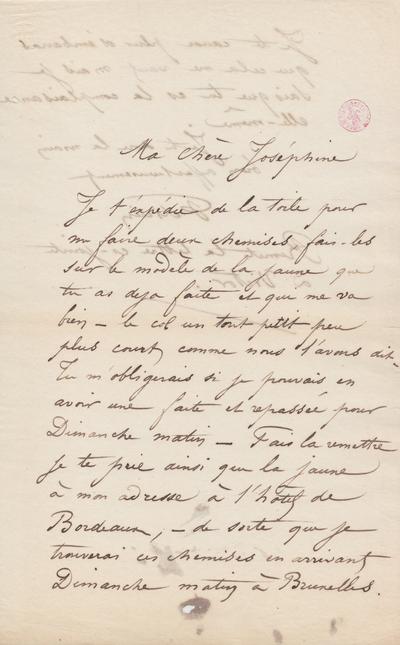 Ma chère Joséphine
Je t'expédie de la toile pour
me faire deux chemises fais-les
sur le modèle de la jaune que
tu as deja faite et qui me va
bien – le col un tout petit peu
plus court comme nous l'avons dit –
Tu m'obligerais si je pouvais en
avoir une faite et repassée pour
Dimanche matin – Fais la remettre
je te prie ainsi que la jaune
à mon adresse à l'hôtel de
Bordeaux, – de sorte que je
trouverai ces chemises en arrivant
Dimanche matin à Bruxelles.